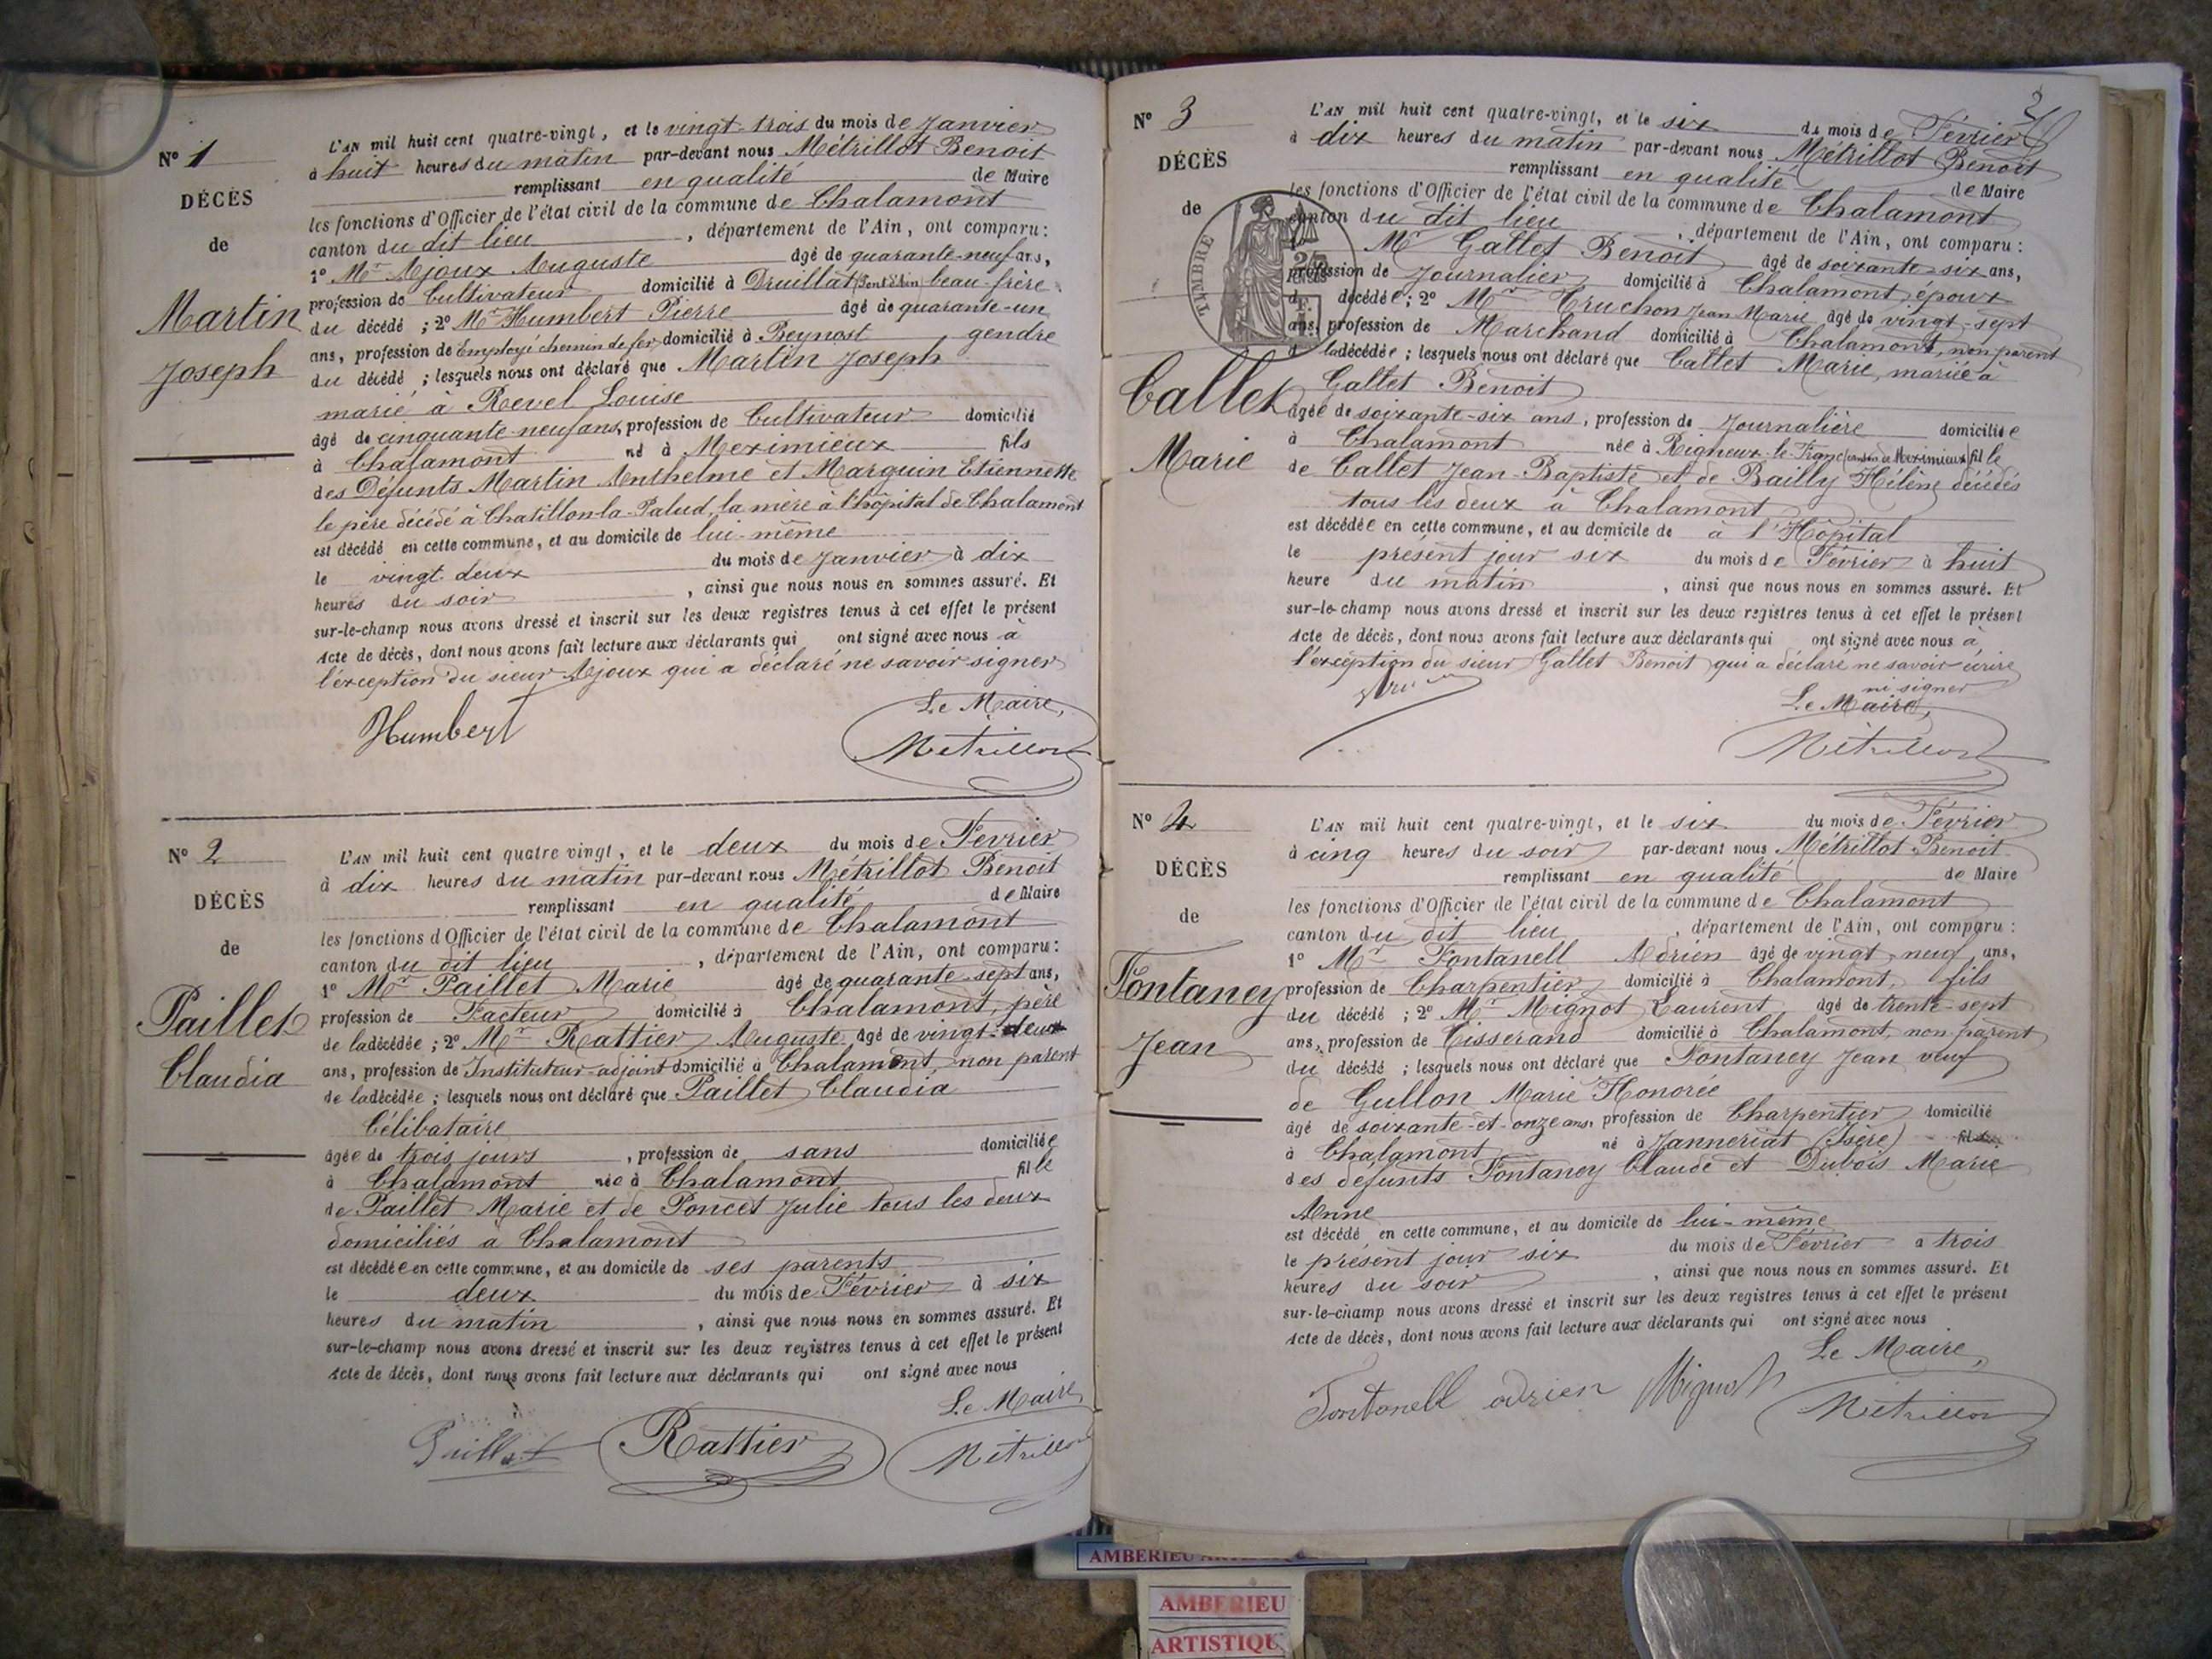 Nº 1
DÉCÈS
de
Martin
Joseph
L'AN mil huit cent quatre-vingt, et le vingt-trois du mois de Janvier
à huit heures du matin par-devant nous Métrillot Benoit
remplissant en qualité de Maire
les fonctions d'Officier de l'état civil de la commune de Chalamont
canton du dit lieu, département de l'Ain, ont comparu:
1º Mr Ajoux Auguste âgé de quarante-neuf ans,
profession de Cultivateur domicilié à Druillat (Pont d'Ain) beau-frère
du décédé ; 2º Mr Humbert Pierre âgé de quarante-un
ans, profession de Employé chemin de fer domicilié à Beynost gendre
du décédé ; lesquels nous ont déclaré que Martin Joseph
marié à Revel Louise
âgé de cinquante-neuf ans, profession de Cultivateur domicilié
à Chalamont né à Meximieux fils
des Défunts Martin Anthelme et Marguin Etiennette
le père décédé à Chatillon-la-Palud, la mère à l'hôpital de Chalamont
est décédé en cette commune, et au domicile de lui-même
le vingt-deux du mois de Janvier à dix
heures du soir, ainsi que nous nous en sommes assuré. Et
sur-le-champ nous avons dressé et inscrit sur les deux registres tenus à cet effet le présent
Acte de décès, dont nous avons fait lecture aux déclarants qui ont signé avec nous à
l'exception du sieur Ajoux qui a déclaré ne savoir signer
Le Maire,
Humbert Métrillot
Nº 2
DÉCÈS
de
Paillet
Claudia
L'AN mil huit cent quatre vingt, et le deux du mois de Février
à dix heures du matin par-devant nous Métrillot Benoit
remplissant en qualité de Maire
les fonctions d'Officier de l'état civil de la commune de Chalamont
canton du dit lieu, département de l'Ain, ont comparu:
1º Mr Paillet Marie âgé de quarante-sept ans,
profession de Facteur domicilié à Chalamont, père
de la décédée ; 2º Mr Rattier Auguste âgé de vingt-deux
ans, profession de Instituteur-adjoint domicilié à Chalamont, non parent
de la décédée ; lesquels nous ont déclaré que Paillet Claudia
Célibataire
âgée de trois jours, profession de sans domiciliée
à Chalamont née à Chalamont fille
de Paillet Marie et de Poncet Julie tous les deux
domiciliés à Chalamont
est décédée en cette commune, et au domicile de ses parents
le deux du mois de Février à six
heures du matin, ainsi que nous nous en sommes assuré. Et
sur-le-champ nous avons dressé et inscrit sur les deux registres tenus à cet effet le présent
Acte de décès, dont nous avons fait lecture aux déclarants qui ont signé avec nous
Le Maire,
Paillet Rattier Métrillot
2
Nº 3
DÉCÈS
de
Callet
Marie
TIMBRE
L'AN mil huit cent quatre-vingt, et le six du mois de Février
à dix heures du matin par-devant nous Métrillot Benoit
remplissant en qualité de Maire
les fonctions d'Officier de l'état civil de la commune de Chalamont
canton du dit lieu, département de l'Ain, ont comparu:
1º Mr Gallet Benoit âgé de soixante-six ans,
profession de Journalier domicilié à Chalamont, époux
de décédée ; 2º Mr Truchon Jean Marie âgé de vingt-sept
ans, profession de Marchand domicilié à Chalamont, non parent
de la décédée ; lesquels nous ont déclaré que Callet Marie, mariée à
Gallet Benoit
âgée de soixante-six ans, profession de Journalière domiciliée
à Chalamont née à Rigneux-le-Franc (canton de Meximieux) fille
de Callet Jean-Baptiste et de Bailly Hélène décédés
tous les deux à Chalamont
est décédée en cette commune, et au domicile de à l'Hôpital
le présent jour six du mois de Février à huit
heure du matin, ainsi que nous nous en sommes assuré. Et
sur-le-champ nous avons dressé et inscrit sur les deux registres tenus à cet effet le présent
Acte de décès, dont nous avons fait lecture aux déclarants qui ont signé avec nous à
l'exception du sieur Gallet Benoit qui a déclaré ne savoir écrire
ni signer
Le Maire,
Métrillot
Nº 4
DÉCÈS
de
Fontaney
Jean
L'AN mil huit cent quatre-vingt, et le six du mois de Février
à cinq heures du soir par-devant nous Métrillot Benoit
remplissant en qualité de Maire
les fonctions d'Officier de l'état civil de la commune de Chalamont
canton du dit lieu, département de l'Ain, ont comparu:
1º Mr Fontanell Adrien âgé de vingt-neuf ans,
profession de Charpentier domicilié à Chalamont, fils
du décédé ; 2º Mr Mignot Laurent âgé de trente-sept
ans, profession de Tisserand domicilié à Chalamont, non parent
du décédé ; lesquels nous ont déclaré que Fontaney Jean veuf
de Gullon Marie Honorée
âgé de soixante-et-onze ans, profession de Charpentier domicilié
à Chalamont né à Janneriat (Isère) fils
des défunts Fontaney Claude et Dubois Marie
Anne
est décédé en cette commune, et au domicile de lui-même
le présent jour six du mois de Février à trois
heures du soir, ainsi que nous nous en sommes assuré. Et
sur-le-champ nous avons dressé et inscrit sur les deux registres tenus à cet effet le présent
Acte de décès, dont nous avons fait lecture aux déclarants qui ont signé avec nous
Le Maire,
Fontanell adrien Mignot Métrillot
AMBERIEU
AMBERIEU
ARTISTIQU